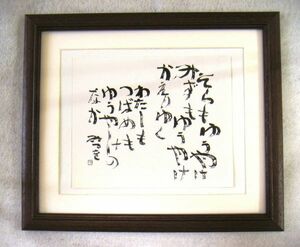 そらもゆうやけ
みずもゆうやけ
かえりゆく
わたしも
つばめも
ゆうやけの
なか